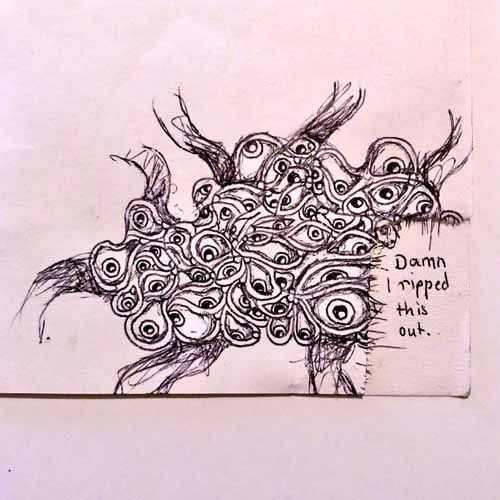 Damn
I ripped
this
out.